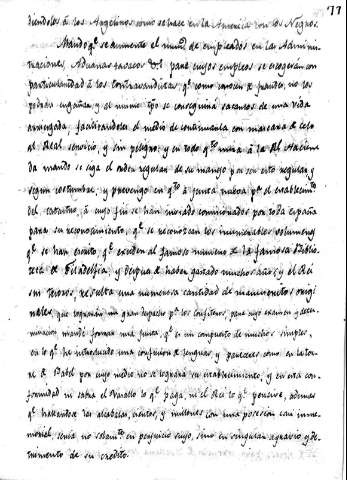 77
diendoles à los Angelinos como se hace en la America con los Negros.
Mando q.e se aumente el num.o de empleados en las Admini-
traciones, Aduanas, tabacos &.a para cuyos empleos se escogeran con
particularidad à los contravandistas, q.e como conocen el fraude, no los
podran engañar, y al mismo tpo se conseguirà sacarlos de una vida
arriesgada, facilitandoles el medio de continuarla con mas gana
al Real servicio, y sin peligro: y en todo q.to mira à la R.l Hacien-
da mando se siga el orden regular de su manejo por ser esto regular, y
segun costumbre, y prevengo en q.to à junta nueva p.a el establecim.to
del catastro, à cuyo fin se han imviado comisionados por toda españa
para su reconocimiento, q.e se reconozcan los innumerables volumenes
q.e se han escrito, q.e exceden al famoso numero de la famosa Biblio-
teca de Filadelfia, y despues de haber gastado muchos años, y el Rei
sus tesoros, resulta una numerosa cantidad de manuscritos origi-
nales, que lograràn un gran despacho p.a los confiteros, para cuyo examen y deter-
minacion mandè formar una junta, q.e es un compuesto de muchos simples,
en lo q.e ha introducido una confusion de lenguas, y pareceres como en la tor-
re de Babel por cuyo medio no se lograrà su establecimiento, y en esta con-
formidad ni sabra el Vasallo lo q.e paga, ni el Rei lo q.e percive, ademas
q.e hallandose las alcabalas, cientos, y millones con una posesion casi inme-
morial, seria no solam.te en perjuicio suyo, sino en singular agravio y de-
trimento de su credito.